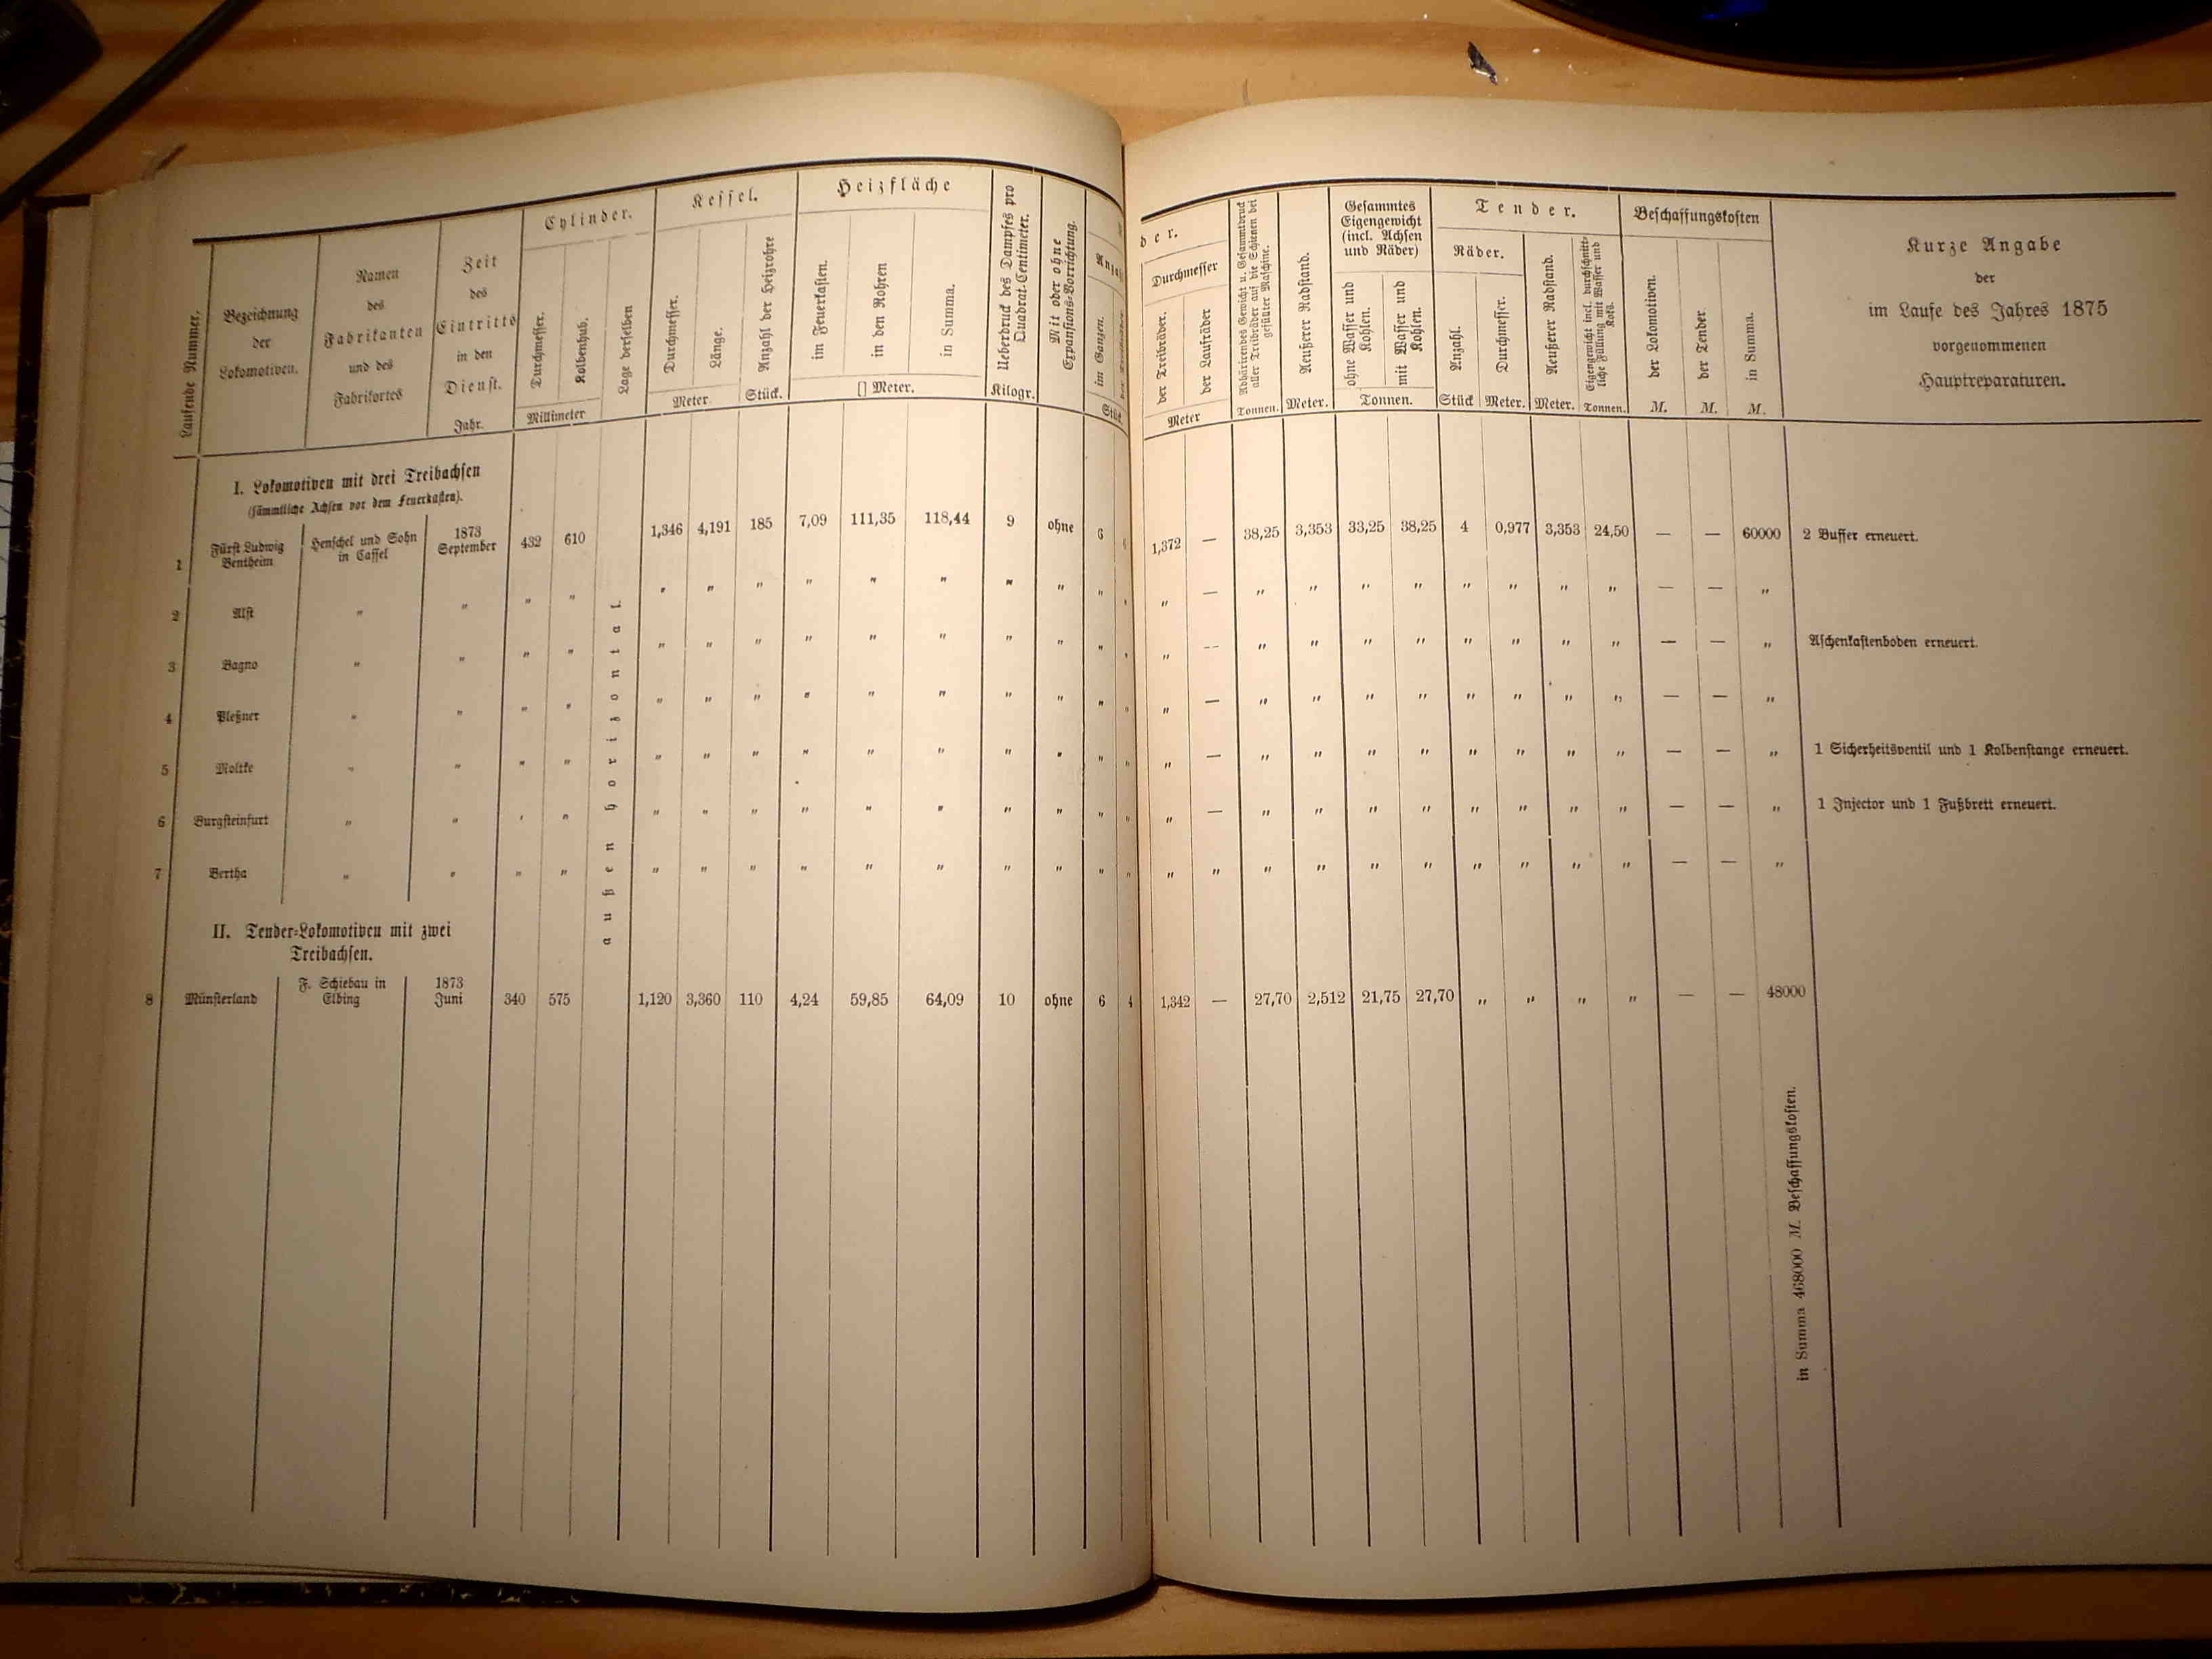 Laufende Nummer.
Bezeichnung
der
Lokomotiven.
Namen
des
Fabrikanten
und des
Fabrikortes
Zeit
des
Eintritts
in den
Dienst.
Jahr.
Cylinder.
Durchmesser.
Kolbenhub.
Millimeter
Lage derselben
Kessel.
Durchmesser.
Länge.
Meter
Anzahl der Heizrohre
Stück.
Heizfläche
im Feuerkasten.
in den Rohren
in Summa.
[] Meter.
Ueberdruck des Dampfes pro
Quadrat-Centimeter.
Kilogr.
Mit oder ohne
Expansions-Vorrichtung.
im Ganzen.
der.
Durchmesser
der Treibräder.
der Laufräder
Meter
Adhärirendes Gewicht u. Gesammtdruck
aller Treibräder auf die Schienen bei
gefüllter Maschine.
Tonnen.
Aeußerer Radstand.
Meter.
Gesammtes
Eigengewicht
(incl. Achsen
und Räder)
ohne Wasser und
Kohlen.
mit Wasser und
Kohlen.
Tonnen.
Tender.
Räder.
Anzahl.
Stück
Durchmesser.
Meter.
Aeußerer Radstand.
Meter.
Eigengewicht incl. durchschnitt-
liche Füllung mit Wasser und
Koks.
Tonnen.
Beschaffungskosten
der Lokomotiven.
M.
der Tender.
M.
in Summa.
M.
Kurze Angabe
der
im Laufe des Jahres 1875
vorgenommenen
Hauptreparaturen.
I. Lokomotiven mit drei Treibachsen
(sämmtliche Achsen vor dem Feuerkasten).
1 Fürst Ludwig Bentheim Henschel und Sohn in Cassel 1873 September 432 610 1,346 4,191 185 7,09 111,35 118,44 9 ohne 6 6 1,372 — 38,25 3,353 33,25 38,25 4 0,977 3,353 24,50 — — 60000 2 Buffer erneuert.
2 Alst " " " " " " " " " " " " " " " — " " " " " " " " — — "
3 Bagno " " " " " " " " " " " " " " " -- " " " " " " " " — — " Aschenkastenboden erneuert.
4 Pleßner " " " " " " " " " " " " " " " — " " " " " " " " — — "
5 Moltke " " " " " " " " " " " " " " " — " " " " " " " " — — " 1 Sicherheitsventil und 1 Kolbenstange erneuert.
6 Burgsteinfurt " " " " " " " " " " " " " " " — " " " " " " " " — — " 1 Injector und 1 Fußbrett erneuert.
7 Bertha " " " " " " " " " " " " " " " " " " " " " " " " — — "
außen horizontal
II. Tender-Lokomotiven mit zwei
Treibachsen.
8 Münsterland F. Schichau in Elbing 1873 Juni 340 575 1,120 3,360 110 4,24 59,85 64,09 10 ohne 6 4 1,342 — 27,70 2,512 21,75 27,70 " " " " — — 48000
in Summa 468000 M. Beschaffungskosten.